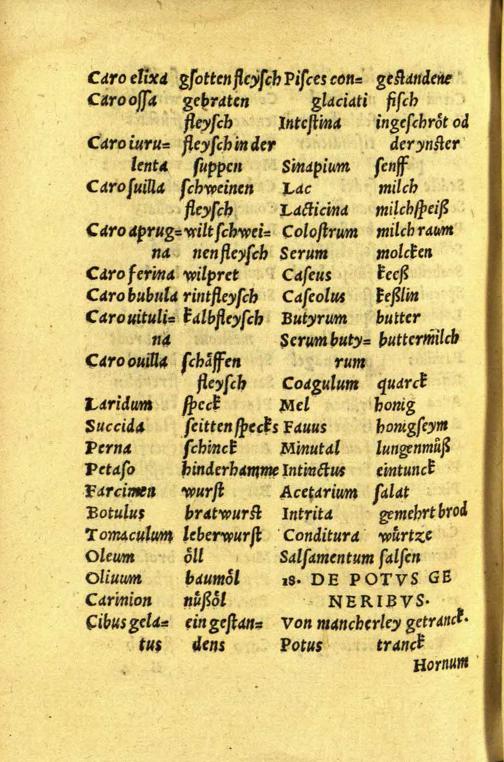 Caro elixa gſotten fleyſch
Caro oſſa gebraten
fleyſch
Caro iuru= fleyſch in der
lenta ſuppen
Caro ſuilla ſchweinen
fleyſch
Caro aprug= wilt ſchwei=
na nen fleyſch
Caro ferina wilpret
Caro bubula rintfleyſch
Caro uituli= kalbfleyſch
na
Caro ouilla ſchäffen
fleyſch
Laridum ſpeck
Succida ſeitten ſpecks
Perna ſchinck
Petaſo hinderhamme
Farcimen wurſt
Botulus bratwurſt
Tomaculum leberwurſt
Oleum öll
Oliuum baumöl
Carinion nüßöl
Cibus gela= ein geſtan=
tus dens
Piſces con= geſtandene
glaciati fiſch
Inteſtina ingeſchröt od
der ynſter
Sinapium ſenff
Lac milch
Lacticina milchſpeiß
Coloſtrum milchraum
Serum molcken
Caſeus keeß
Caſeolus keßlin
Butyrum butter
Serum buty= buttermilch
rum
Coagulum quarck
Mel honig
Fauus honigſeym
Minutal lungenmůß
Intinctus eintunck
Acetarium ſalat
Intrita gemehrt brod
Conditura würtze
Salſamentum ſalſen
18. DE POTVS GE
NERIBVS.
Von mancherley getranck.
Potus tranck
Hornum